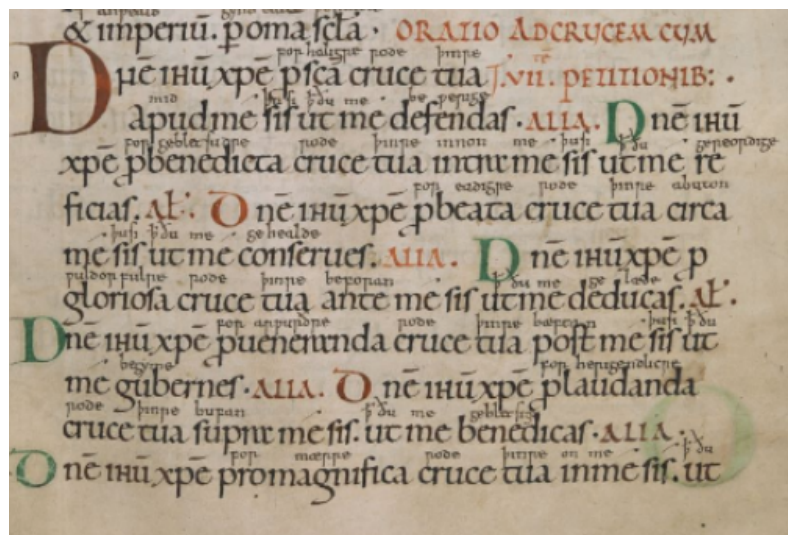 & imperiū. ꝓ oma sc̄la · ORATIO AD CRUCEM CUM
for haligre rode þinre
Dn̄e ihū xp̄e ꝓ sc̄a cruce tua ·VII· PETITIONIB:·
mid þu si þ̄ ðu me
Apud me sis ut me defendas · ALIA. Dn̄e ihū
for gebletsudre rode þinre innon me þusi þ̄ ðu gereordige
xp̄e ꝓ benedicta cruce tua intra me sis ut me re
for eadigre rode þinre abuton
ficias. AL: Dn̄e ihū xp̄e ꝓ beata cruce tua circa
þusi þ̄ ðu me gehealde
me sis ut me conserues. ALIA. Dn̄e ihū xp̄e ꝓ
wuldorfulre rode þinre beforan þ̄ ðu me ge læde
gloriosa cruce tua ante me sis ut me deducas. AL·
for arwurðre rode þinre bæftan þusi þ̄ ðu
Dn̄e ihū xp̄e ꝓ ueneranda cruce tua post me sis ut
begyme for herigendlicre
me gubernes · ALIA. Dn̄e ihū xp̄e ꝓ laudanda
rode þinre bufan þ̄ ðu me gebletsige
cruce tua supra me sis. ut me benedicas · ALIA·
for mærre rode þinre on me þ̄ ðu
Dn̄e ihū xp̄e pro magnifica cruce tua in me sis. ut